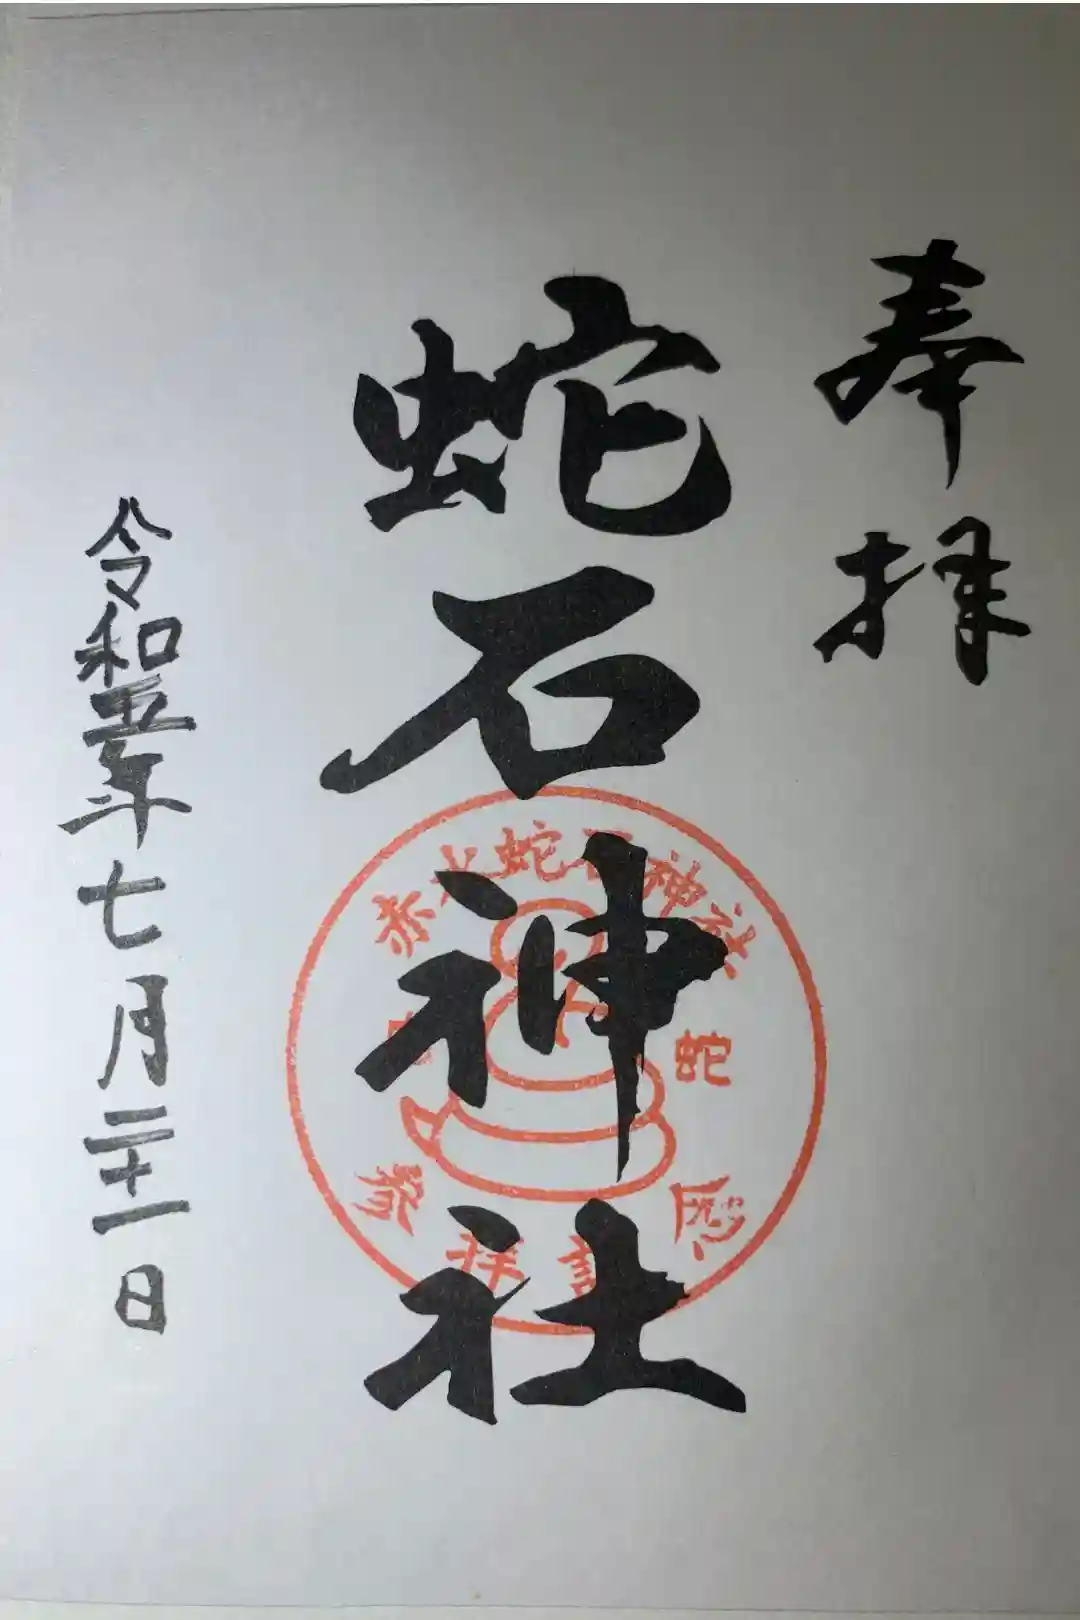 奉拝
蛇石神社
赤水蛇石神社
白蛇
参拝記念
令和五年七月二十一日